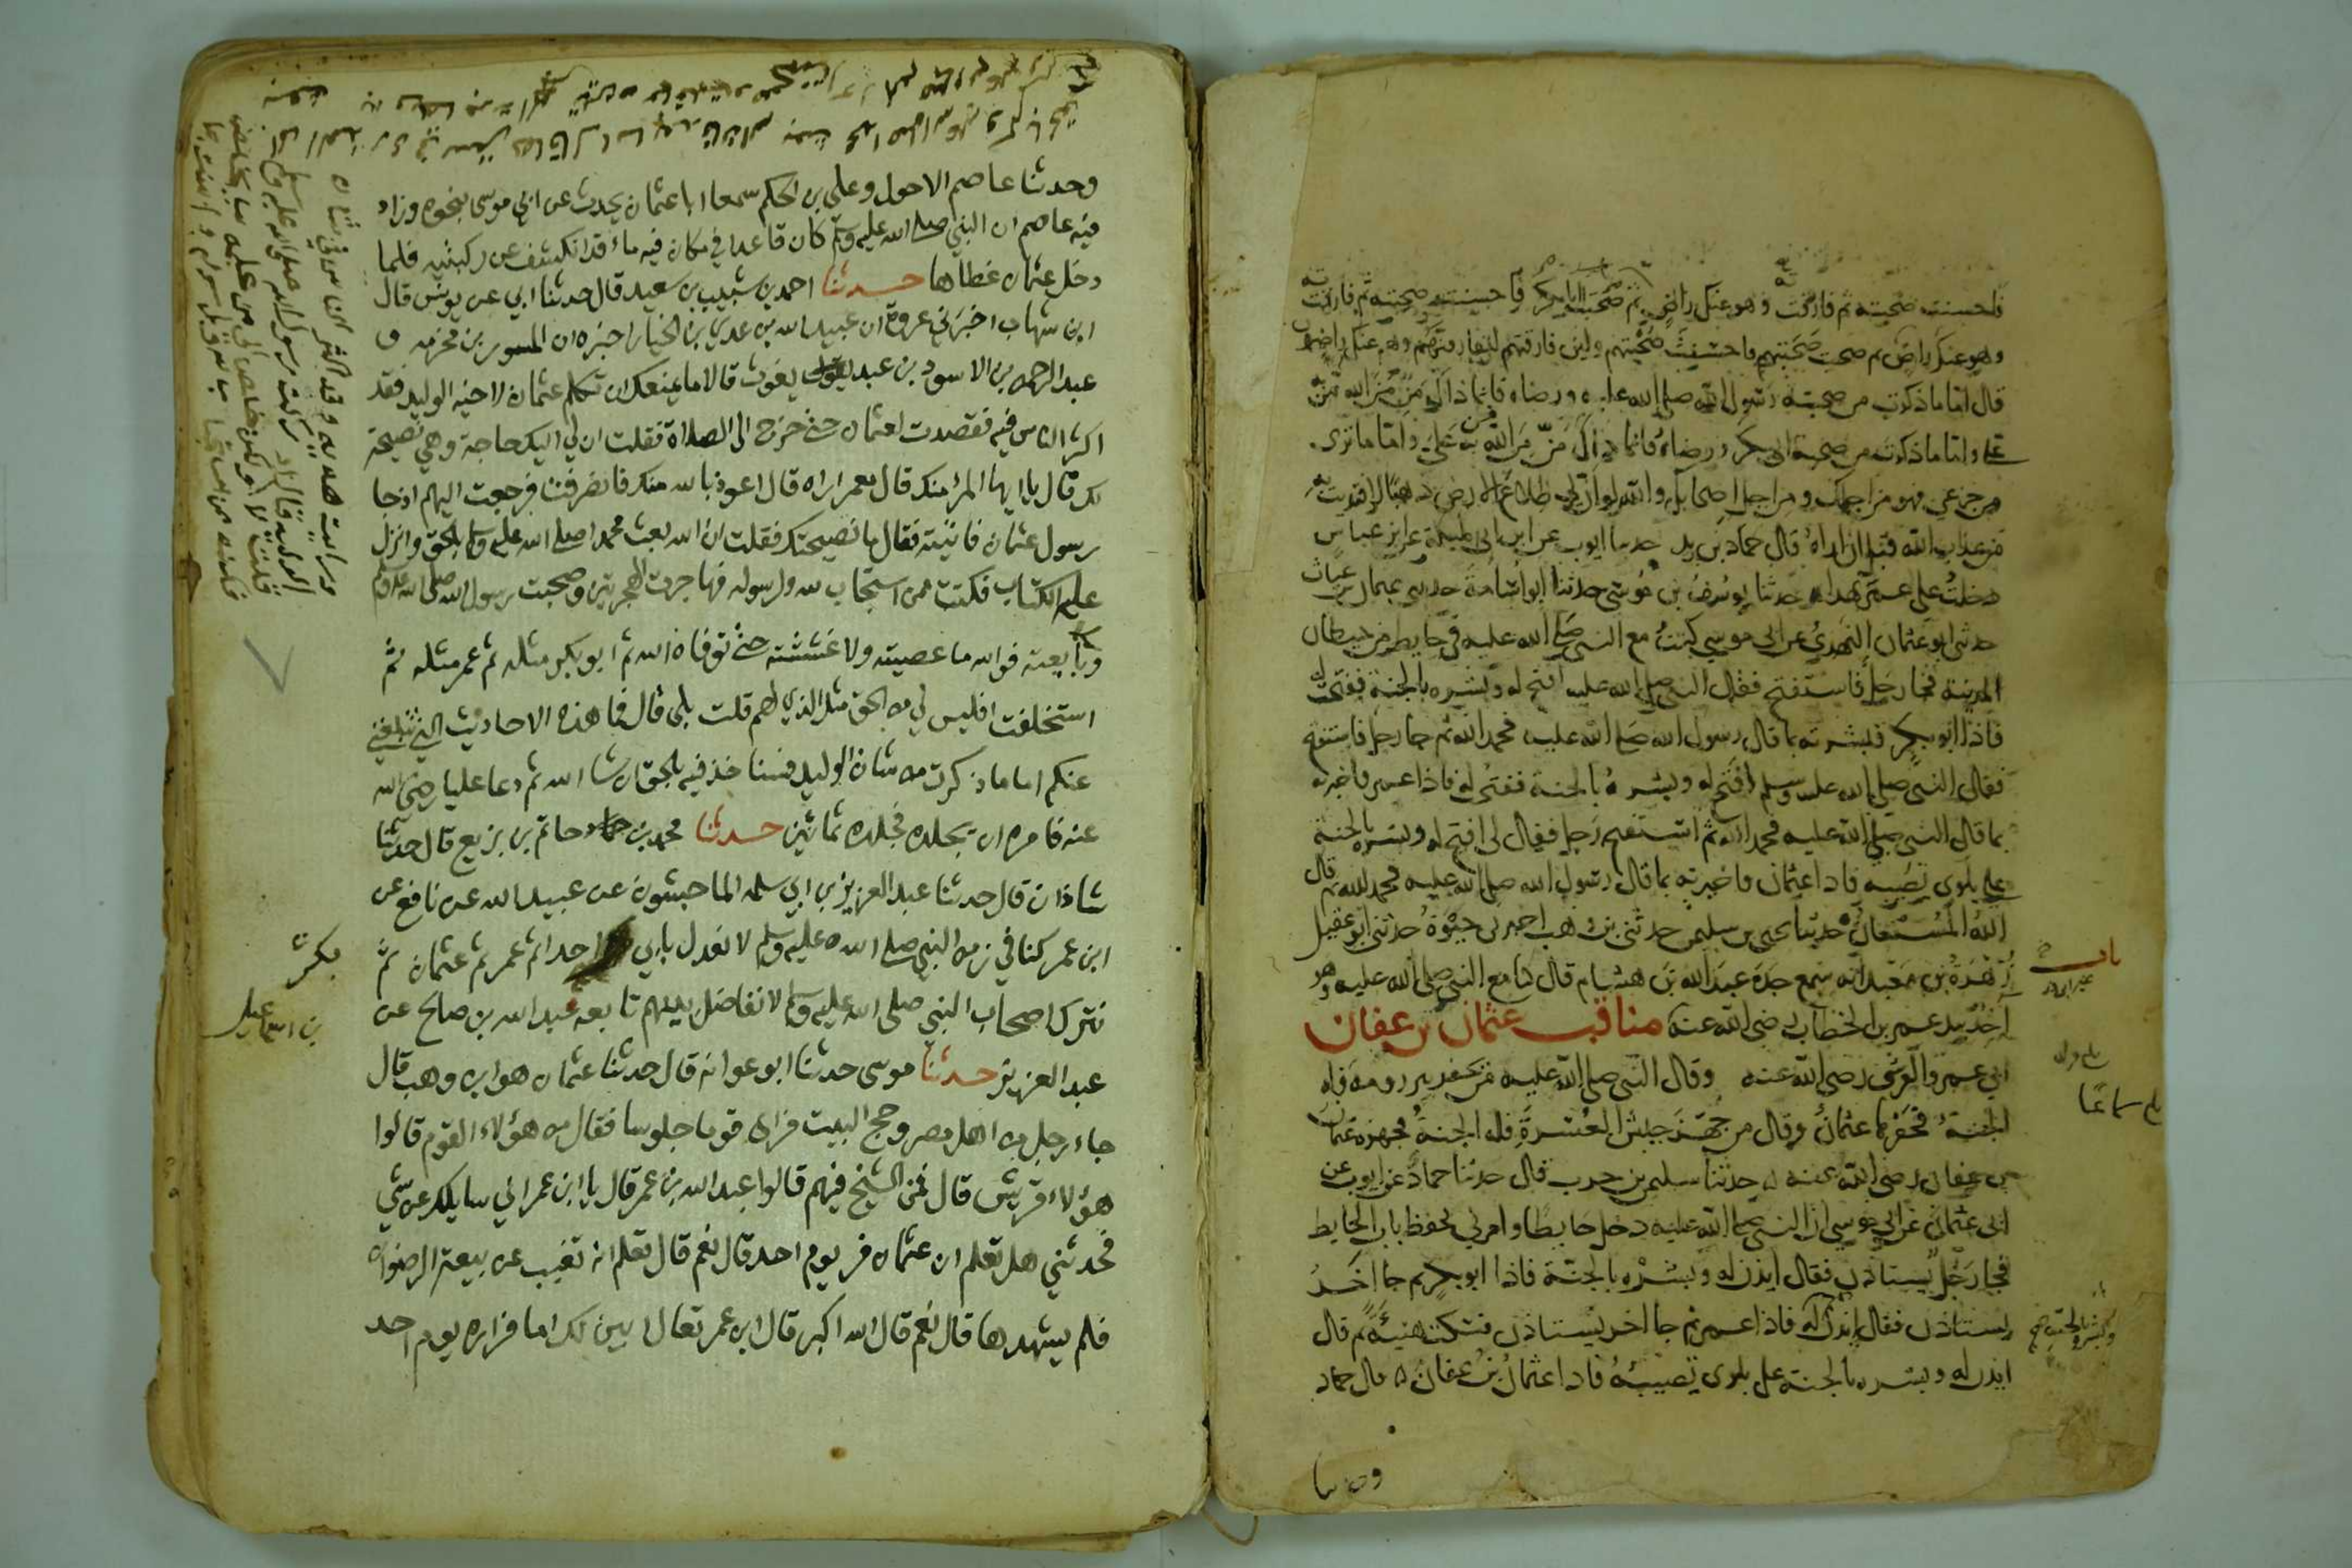 فاحسنت صحبته ثم فارقت وهو عنك راض ثم صحبت ابا بكر فاحسنت صحبته ثم فارقت
وهو عنك راض ثم صحبت صحبتهم فاحسنت صحبتهم ولين فارقتهم لتفارقنهم وهم عنك راضون
قال اما ما ذكرت من صحبة رسول الله صلى الله عليه ورضاه فانما ذاك من من الله من به
على واما ما ذكرت من صحبة ابي بكر ورضاه فانما ذاك من من الله من به علي واما ما ترى
من جزعي فهو من اجلك ومن اجل اصحابك والله لو ان لي طلاع الارض ذهبا لافتديت به
من عذاب الله قبل ان اراه قال حماد بن زيد حدثنا ايوب عن ابن ابي مليكة عن ابن عباس
دخلت على عمر بهذا حدثنا يوسف بن موسى حدثنا ابو اسامة حدثني عثمان بن غياث
حدثني ابو عثمان النهدي عن ابي موسى كنت مع النبي صلى الله عليه في حايط من حيطان
المدينة فجا رجل فاستفتح فقال النبي صلى الله عليه افتح له وبشره بالجنة ففتحت له
فاذا ابو بكر فبشرته بما قال رسول الله صلى الله عليه فحمد الله ثم جا رجل فاستفتح
فقال النبي صلى الله عليه وسلم افتح له وبشره بالجنة ففتحت له فاذا عمر فاخبرته
بما قال النبي صلى الله عليه فحمد الله ثم استفتح رجل فقال لي افتح له وبشره بالجنة
على بلوى تصيبه فاذا عثمان فاخبرته بما قال رسول الله صلى الله عليه فحمد الله ثم قال
الله المستعان حدثنا يحيى بن سليمن حدثني بن وهب اخبرني حيوة حدثني ابو عقيل
زهرة بن معبد انه سمع جده عبد الله بن هشام قال كنا مع النبي صلى الله عليه وهو
اخذ بيد عمر بن الخطاب رضي الله عنه مناقب عثمان بن عفان
ابي عمرو القرشي رضي الله عنه وقال النبي صلى الله عليه من يحفر بير رومة فله
الجنة فحفرها عثمان وقال من جهز جيش العسرة فله الجنة فجهزه عثمان
بن عفان رضي الله عنه حدثنا سليمن بن حرب قال حدثنا حماد عن ايوب عن
ابي عثمان عن ابي موسى ان النبي صلى الله عليه دخل حايطا وامرني بحفظ باب الحايط
فجا رجل يستاذن فقال ايذن له وبشره بالجنة فاذا ابو بكر ثم جا اخر
يستاذن فقال ايذن له فاذا عمر ثم جا اخر يستاذن فسكت هنيئة ثم قال
ايذن له وبشره بالجنة على بلوى تصيبه فاذا عثمان بن عفان قال حماد
باب
سماعا
وبشره بالجنة صح
وحدثنا
وحدثنا عاصم الاحول وعلي بن الحكم سمعا ابا عثمان يحدث عن ابي موسى بنحوه وزاد
فيه عاصم ان النبي صلى الله عليه وسلم كان قاعدا في مكان فيه ماء قد انكشف عن ركبتيه فلما
دخل عثمان غطاها حدثنا احمد بن شبيب بن سعيد قال حدثنا ابي عن يونس قال
ابن شهاب اخبرني عروة ان عبيد الله بن عدي بن الخيار اخبره ان المسور بن مخرمة و
عبد الرحمن بن الاسود بن عبد يغوث قالا ما يمنعك ان تكلم عثمان لاخيه الوليد فقد
اكثر الناس فيه فقصدت لعثمان حتى خرج الى الصلاة فقلت ان لي اليك حاجة وهي نصيحة
لك قال يا ايها المرء منك قال معمر اراه قال اعوذ بالله منك فانصرفت فرجعت اليهم اذ جا
رسول عثمان فاتيته فقال ما نصيحتك فقلت ان الله بعث محمدا صلى الله عليه وسلم بالحق وانزل
عليه الكتاب فكنت ممن استجاب لله ولرسوله فهاجرت الهجرتين وصحبت رسول الله صلى الله عليه وسلم
وبايعته فوالله ما عصيته ولا غششته حتى توفاه الله ثم ابو بكر مثله ثم عمر مثله ثم
استخلفت افليس لي من الحق مثل الذي لهم قلت بلى قال فما هذه الاحاديث التي تبلغني
عنكم اما ما ذكرت من شان الوليد فسناخذ فيه بالحق ان شا الله ثم دعا عليا رضي الله
عنه فامره ان يجلده فجلده ثمانين حدثنا محمد بن حاتم بن بزيع قال حدثنا
شاذان قال حدثنا عبد العزيز بن ابي سلمه الماجشون عن عبيد الله عن نافع عن
ابن عمر كنا في زمن النبي صلى الله عليه وسلم لا نعدل بابي احدا ثم عمر ثم عثمان ثم
نترك اصحاب النبي صلى الله عليه وسلم لا نفاضل بينهم تابعه عبد الله بن صالح عن
عبد العزيز حدثنا موسى حدثنا ابو عوانه قال حدثنا عثمان هو ابن وهب قال
جاء رجل من اهل مصر وحج البيت فراى قوما جلوسا فقال من هؤلاء القوم قالوا
هؤلاء قريش قال فمن الشيخ فيهم قالوا عبد الله بن عمر قال يا ابن عمر اني سايلك عن شي
فحدثني هل تعلم ان عثمان فر يوم احد قال نعم قال تعلم انه تغيب عن بيعة الرضوان
فلم يشهدها قال نعم قال الله اكبر قال ابن عمر تعال ابين لك اما فراره يوم احد
بكر
بن اسماعيل